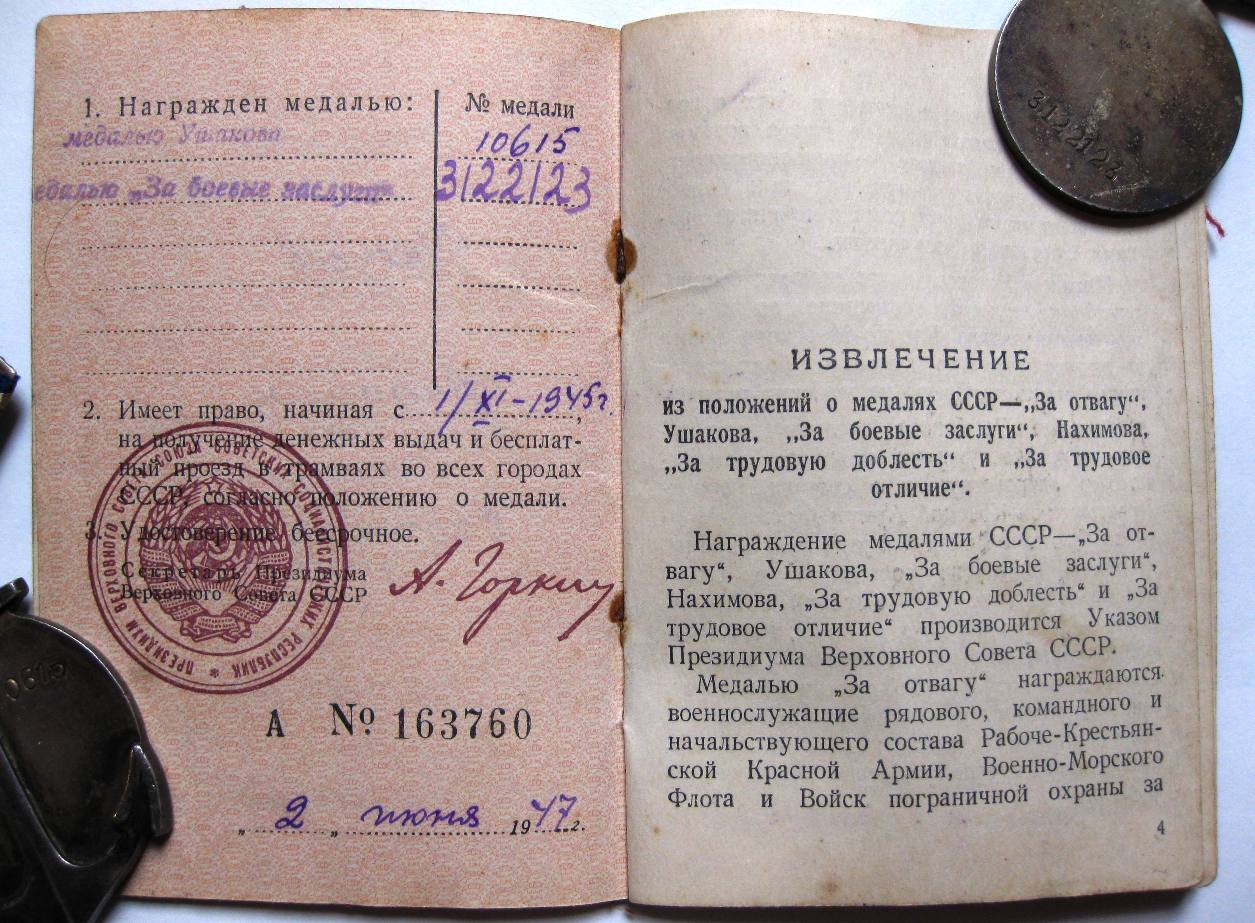 1. Награжден медалью:
№ медали
медалью Ушакова
10615
едалью „За боевые заслуги“
3122123
2. Имеет право, начиная с 1/XI-1945г.,
на получение денежных выдач и бесплат-
ный проезд в трамваях во всех городах
СССР, согласно положению о медали.
3. Удостоверение бессрочное.
Секретарь Президиума
Верховного Совета СССР
А. Горкин
ПРЕЗИДИУМ ВЕРХОВНОГО СОВЕТА СОЮЗА СОВЕТСКИХ СОЦИАЛИСТИЧЕСКИХ РЕСПУБЛИК *
А № 163760
„ 2 „ июня 1947 г.
ИЗВЛЕЧЕНИЕ
из положений о медалях СССР—„За отвагу“,
Ушакова, „За боевые заслуги“, Нахимова,
„За трудовую доблесть“ и „За трудовое
отличие“.
Награждение медалями СССР—„За от-
вагу“, Ушакова, „За боевые заслуги“,
Нахимова, „За трудовую доблесть“ и „За
трудовое отличие“ производится Указом
Президиума Верховного Совета СССР.
Медалью „За отвагу“ награждаются
военнослужащие рядового, командного и
начальствующего состава Рабоче-Крестьян-
ской Красной Армии, Военно-Морского
Флота и Войск пограничной охраны за
4
3122123
10615